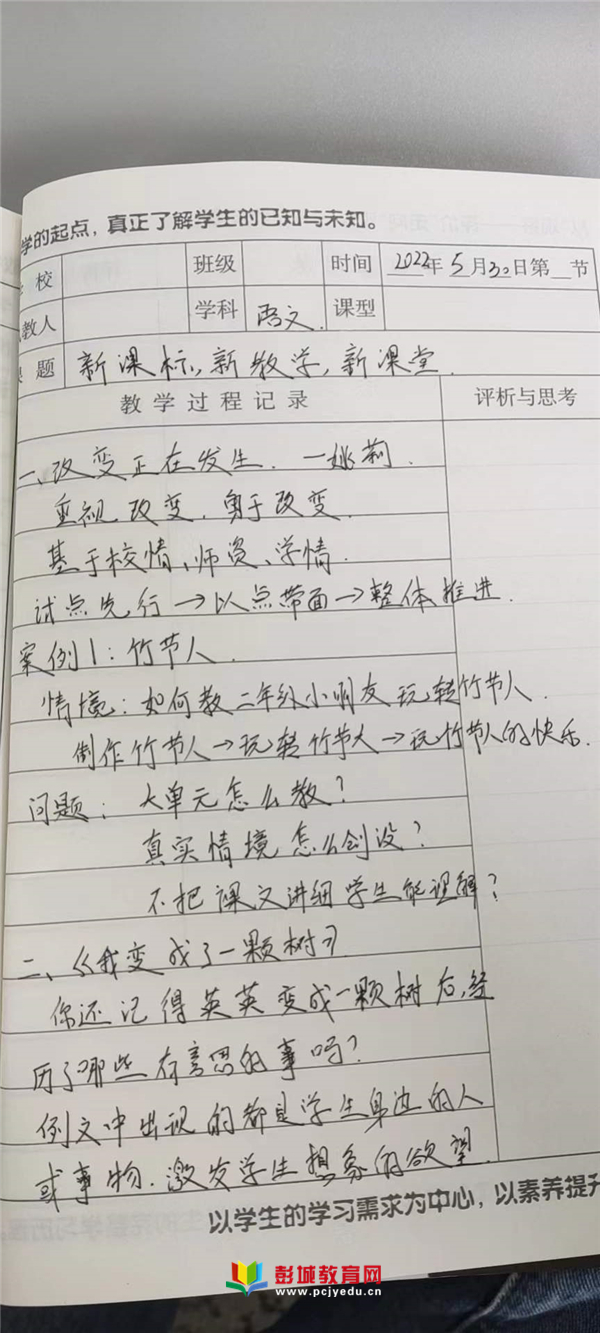 学的起点，真正了解学生的已知与未知。
校 班级 时间 2022年5月30日第 节
教人 学科 语文. 课型
题 新课标, 新教学, 新课堂.
教学过程记录 评析与思考
一、改变正在发生. —姚莉.
重视改变. 勇于改变.
基于校情、师资、学情.
试点先行→以点带面→整体推进.
案例1: 竹节人.
情境: 如何教二年级小朋友玩转竹节人.
制作竹节人→玩转竹节人→玩竹节人的快乐.
问题: 大单元怎么教?
真实情境怎么创设?
不把课文讲细学生能理解?
二、《我变成了一颗树》
你还记得英英变成一颗树后,经
历了哪些有意思的事吗?
例文中出现的都是学生身边的人
或事物. 激发学生想象的欲望.
以学生的学习需求为中心，以素养提升
彭城教育网
www.pcjyedu.cn